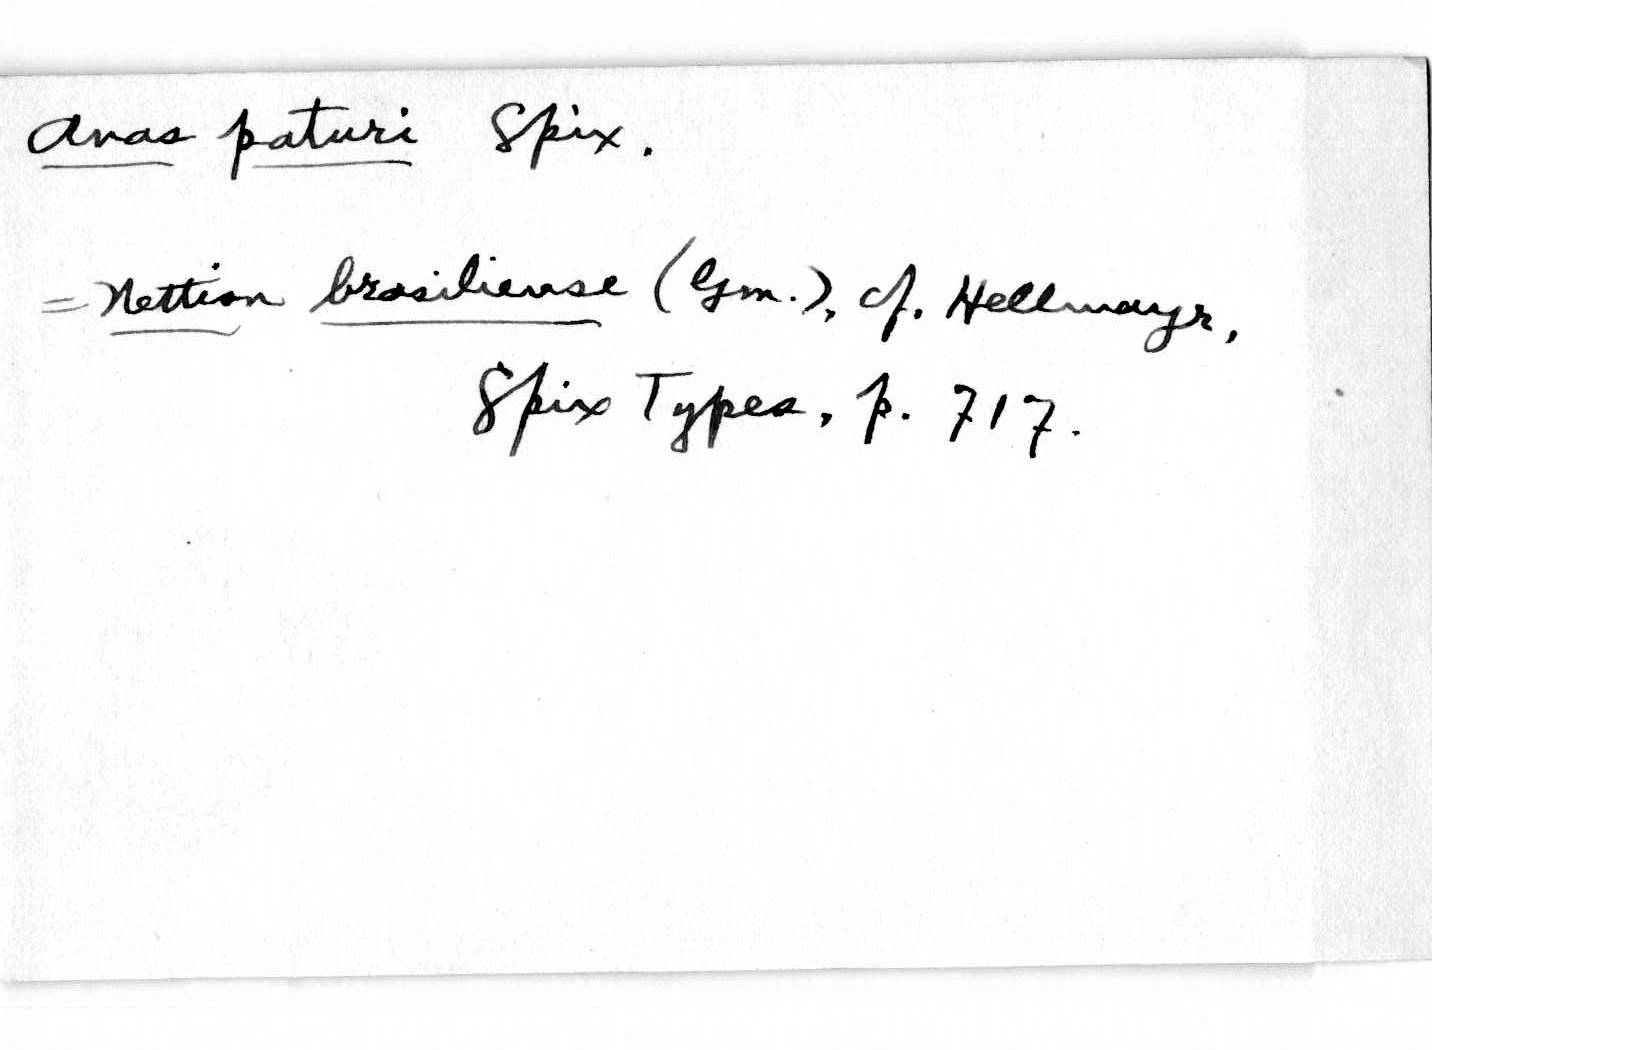 Anas paturi Spix.
= Nettion brasiliense (Gm.), cf. Hellmayr,
Spix Types, p. 717.